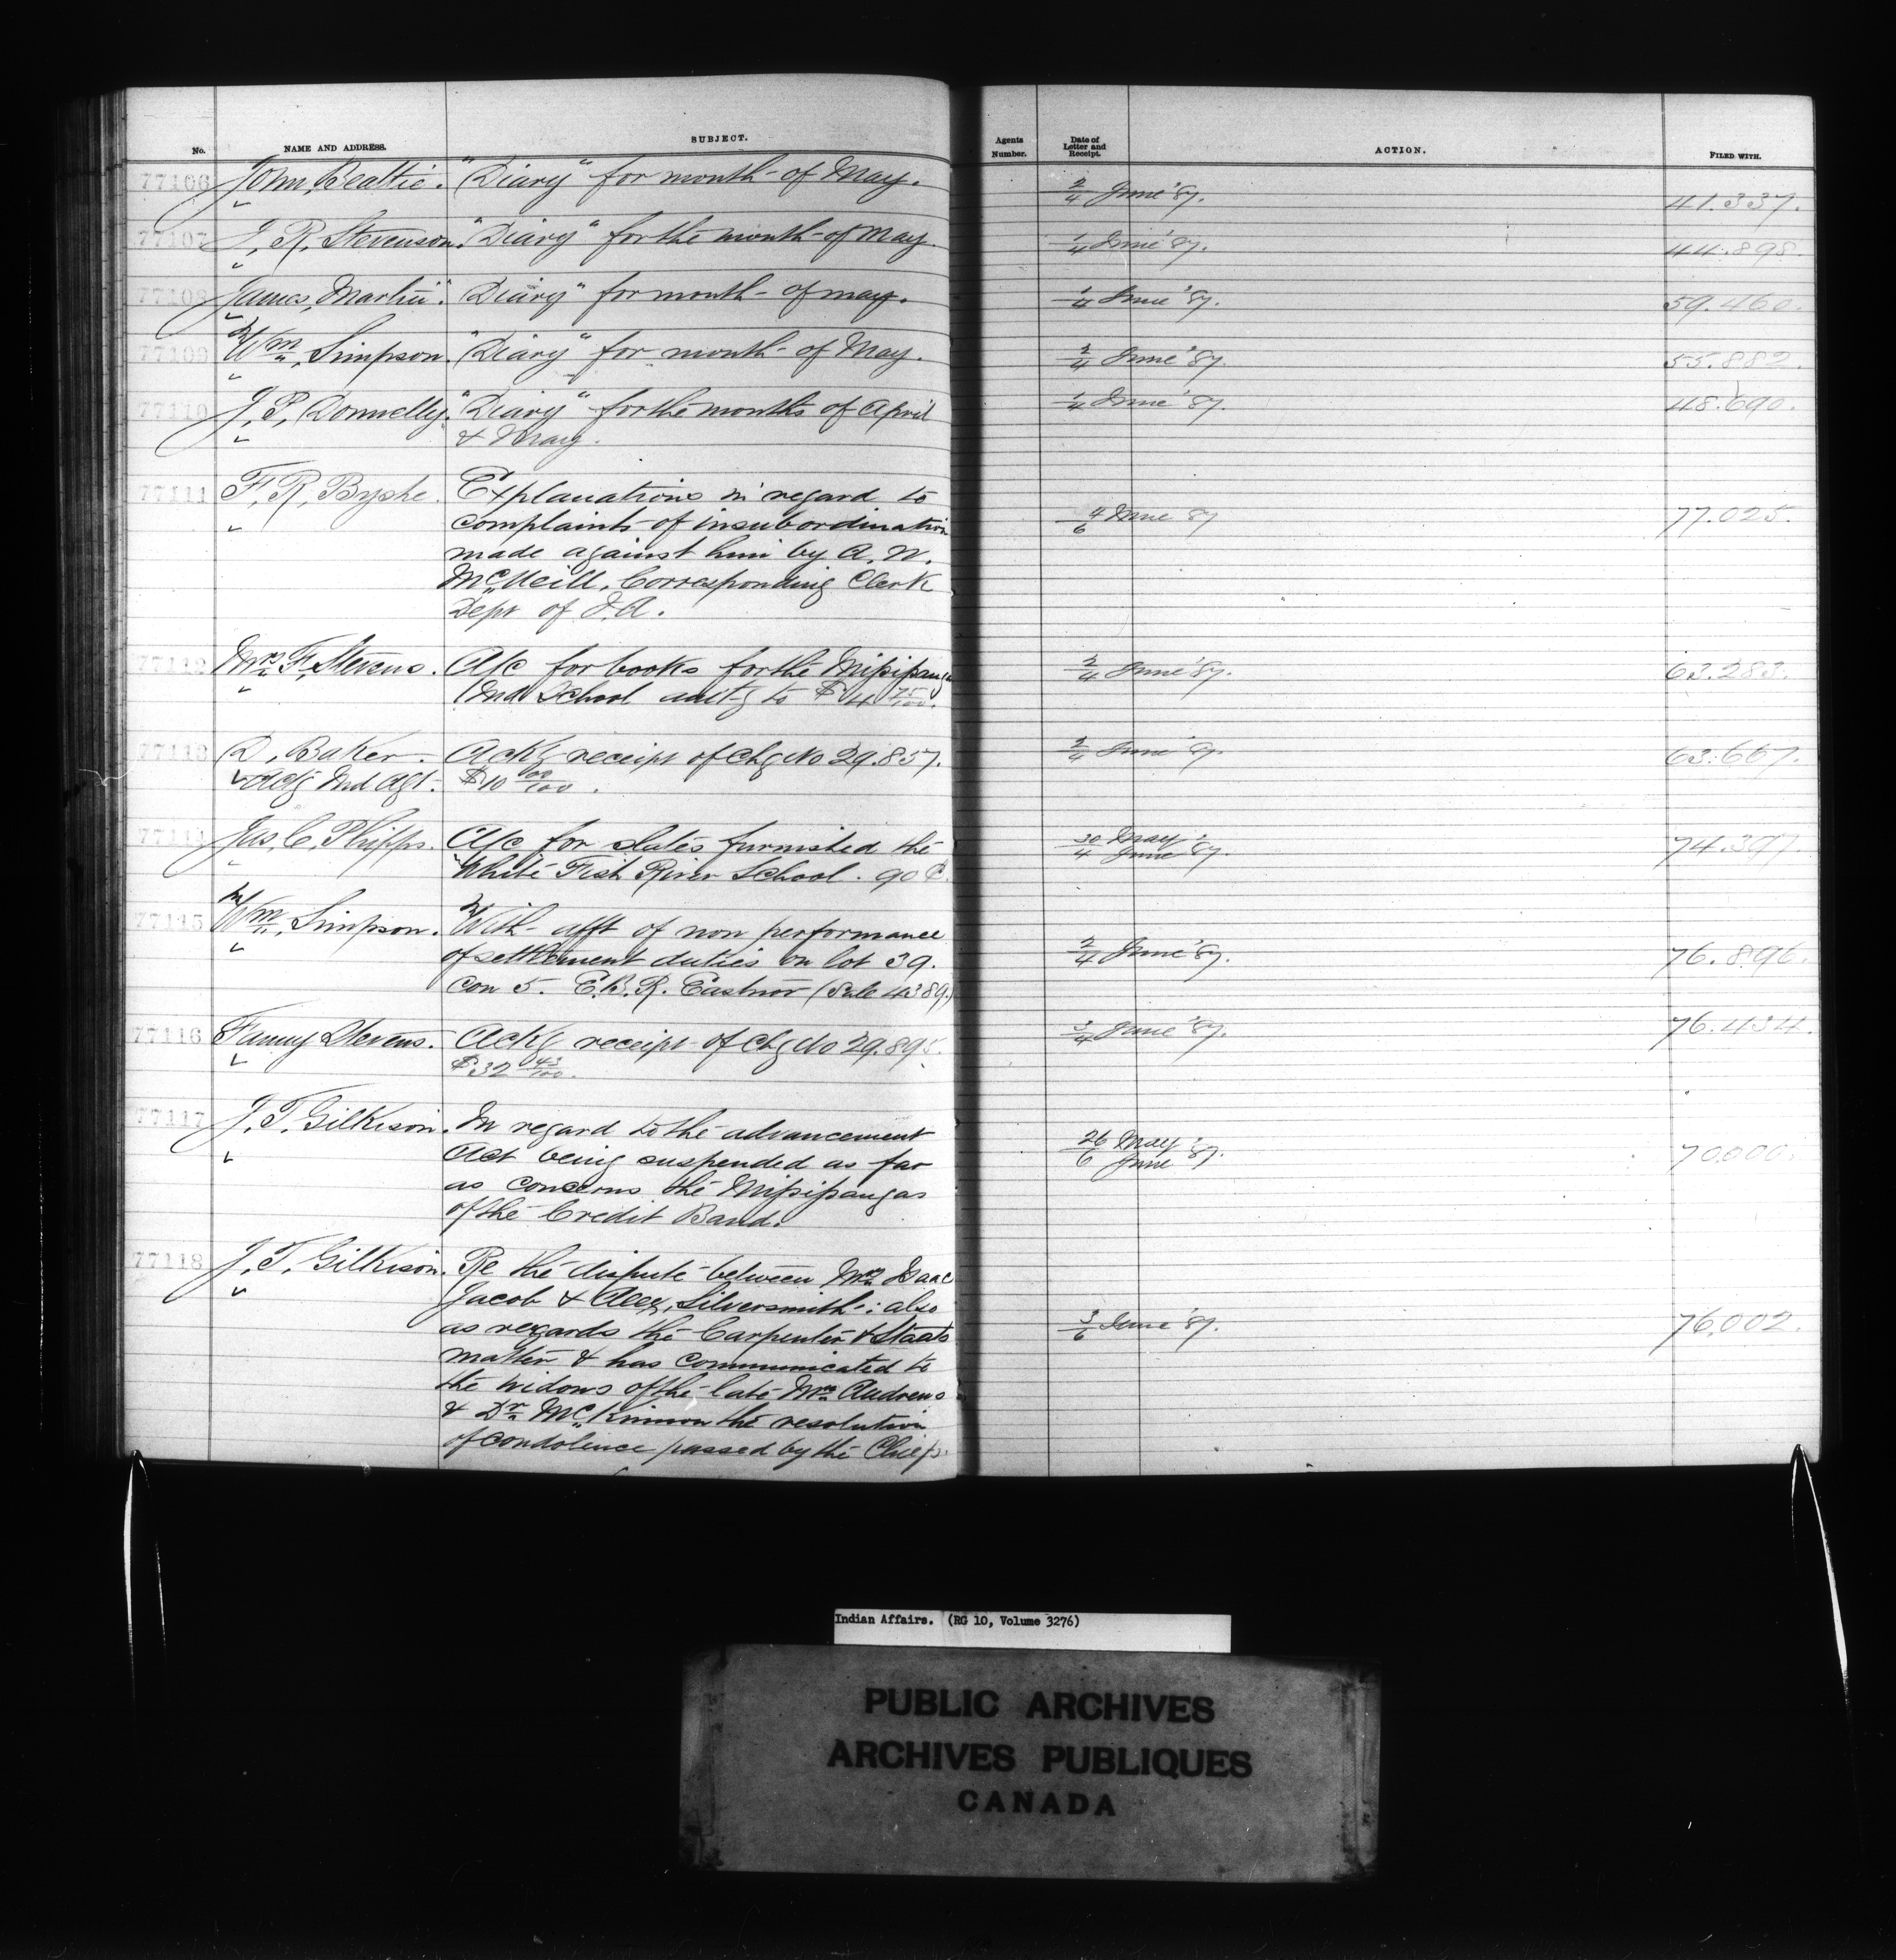 No. NAME AND ADDRESS. SUBJECT. Agents Number. Date of Letter and Receipt. ACTION. FILED WITH.
77106 John Beattie. "Diary" for month of May. 2/4 June '87. 41.337.
77107 J. R. Stevenson. "Diary" for the month of May. 1/4 June '87. 44.898.
77108 James Martin. "Diary" for month of May. 1/4 June '87. 59.460.
77109 Wm. Simpson. "Diary" for month of May. 2/4 June '87. 55.882.
77110 J. P. Donnelly. "Diary" for the months of April 1/4 June '87. 48.690.
& May.
77111 F. R. Byshe. Explanations in regard to
complaints of insubordination 4/6 June 87 77.025.
made against him by A. N.
McNeill, Corresponding Clerk
Dept of I.A.
77112 Mrs. F. Stevens. A/c for books for the Missisauga 2/4 June '87. 63.283.
Ind School amtg to $4 75/100.
77113 D. Baker. Ackg receipt of Chq No 29.857. 2/4 June '87. 63.667.
Actg Ind Agt. $10 00/100.
77114 Jas. C. Phipps. A/c for slates furnished the 30 May/4 June '87. 74.397.
White Fish River School. 90 ¢.
77115 Wm. Simpson. With afft of non performance
of settlement duties on lot 39. 2/4 June '87. 76.896.
Con 5. E.B.R. Eastnor (Sale 4389.)
77116 Fanny Stevens. Ackg receipt of Chq No 29.895. 3/4 June '87. 76.434.
$32 43/100.
77117 J. T. Gilkison. In regard to the advancement
Act being suspended as far 26 May/6 June '87. 70.000.
as concerns the Missisaugas
of the Credit Band.
77118 J. T. Gilkison. Re the dispute between Mrs Isaac
Jacob & Alex. Silversmith: also
as regards the Carpenter & Staats 3/6 June '87. 76.002.
matter & has communicated to
the widows of the late Mrs Andrews
& Dr. McKinnon the resolution
of condolence passed by the Chiefs.
Indian Affairs. (RG 10, Volume 3276)
PUBLIC ARCHIVES
ARCHIVES PUBLIQUES
CANADA